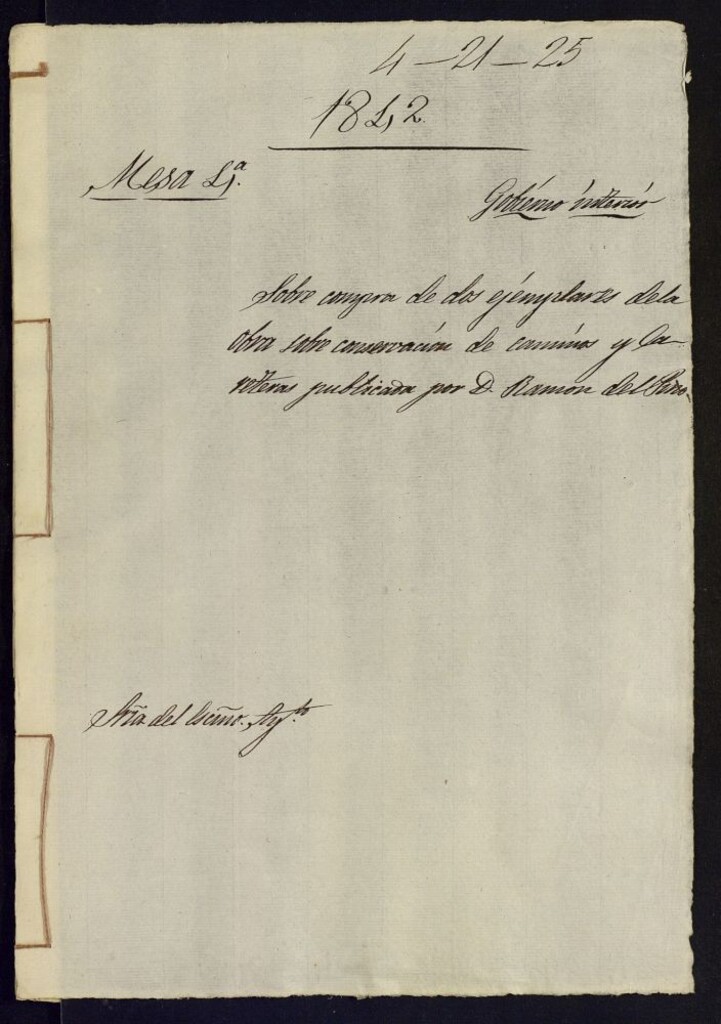 4-21-25
1842
Mesa 4ª.
Gobiérno intériór
Sobre compra de dos ejémplares de la
obra sobre conservación de caminos y Ca-
rréteras publicada por D. Ramon del Pino.
Sría del Escmo. Ayto